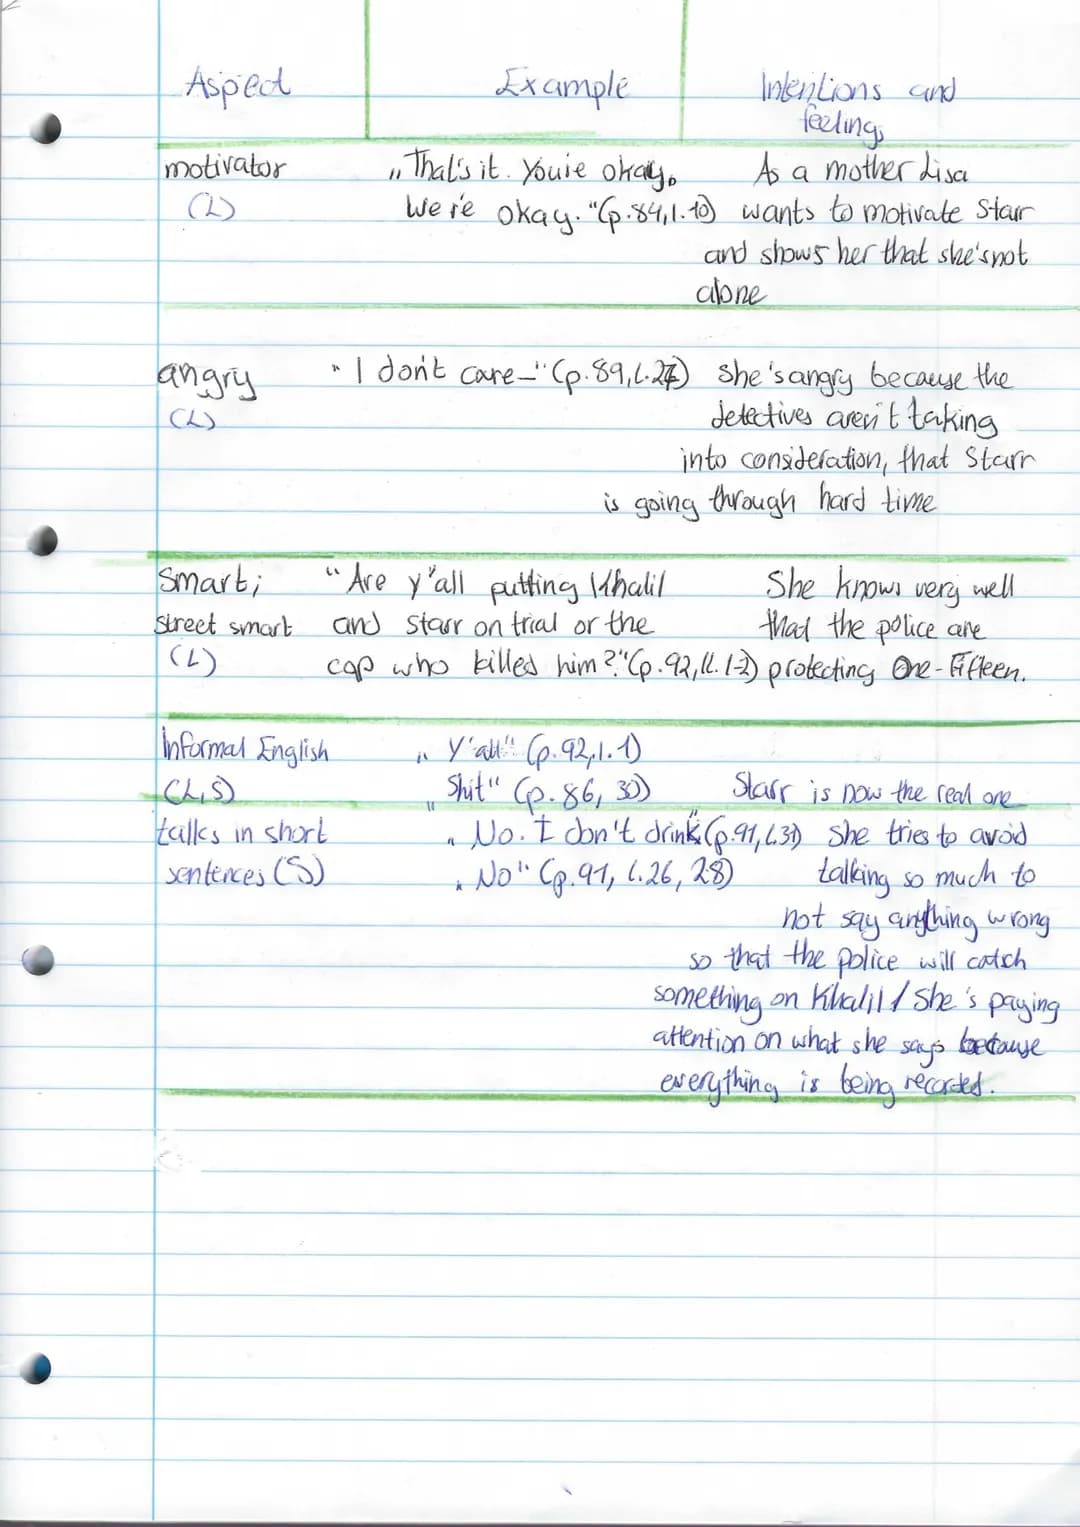 Aspect Example Intentions and
feelings
motivator „That's it. You're okay.
(L) We're okay." (p.84, l.10)
As a mother Lisa
wants to motivate Starr
and shows her that she's not
alone
angry "I don't care–" (p.89, l.27)
(L)
She's angry because the
detectives aren't taking
into consideration, that Starr
is going through hard time
smart; "Are y'all putting Khalil
street smart and Starr on trial or the
(L) cop who killed him?" (p.92, ll.1-2)
She knows very well
that the police are
protecting One-Fifteen.
Informal English „Y'all" (p.92, l.1)
(L,S) „Shit" (p.86, 30) Starr is now the real one
talks in short „No. I don't drink" (p.91, l.31)
sentences (S) „No" (p.91, l.26, 28)
She tries to avoid
talking so much to
not say anything wrong
so that the police will catch
something on Khalil / She's paying
attention on what she says because
everything is being recorded.